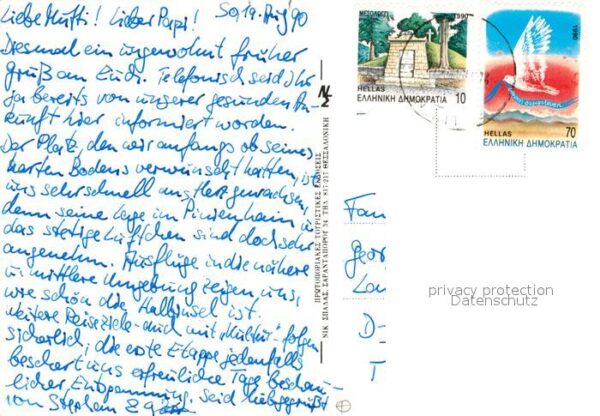 Liebe Mutti! Lieber Papi! So, 19. Aug '90
Diesmal ein ungewohnt früher
Gruß an Euch. Telefonisch seid Ihr
ja bereits von unserer gesunden An-
kunft hier informiert worden.
Der Platz, den wir anfangs ob seines
harten Bodens verwünscht hatten, ist
uns sehr schnell ans Herz gewachsen,
denn seine Lage im Pinienhain u.
das stetige Lüftchen sind doch sehr
angenehm. Ausflüge in die nähere
u. mittlere Umgebung zeigen uns,
wie schön die Halbinsel ist.
Weitere Reiseziele - auch mit "Kultur" - folgen
sicherlich, die erste Etappe jedenfalls
beschert uns erfreuliche Tage beschau-
licher Entspannung. Seid liebgegrüßt
von Stephan
ΠΡΩΤΟΠΟΡΙΑΚΕΣ ΤΟΥΡΙΣΤΙΚΕΣ ΕΚΔΟΣΕΙΣ
ΝΙΚ. ΣΠΑΛΑΣ, ΣΑΡΑΝΤΑΠΟΡΟΥ 34 ΤΗΛ. 817-217 ΘΕΣΣΑΛΟΝΙΚΗ
1990
HELLAS
ΕΛΛΗΝΙΚΗ ΔΗΜΟΚΡΑΤΙΑ 10
1990
HELLAS 70
ΕΛΛΗΝΙΚΗ ΔΗΜΟΚΡΑΤΙΑ
Fam
Geor
D-
T
privacy protection
Datenschutz